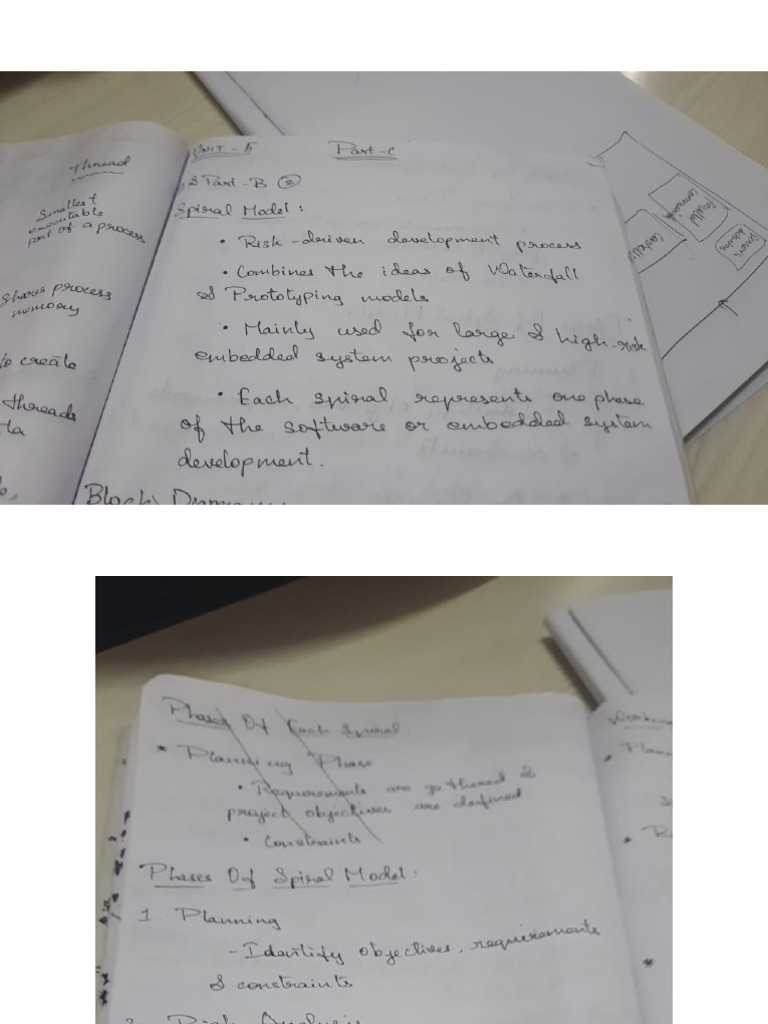 Thread
Smallest
executable
part of a process
shares process
memory
to create
threads
UNIT - 5
Part-C
& Part-B 2
Spiral Model :
• Risk-driven development process
• Combines the ideas of Waterfall
& Prototyping models
• Mainly used for large & high-risk
embedded system projects
• Each spiral represents one phase
of the software or embedded system
development.
Block
Phases Of Each Spiral
* Planning Phase
• Requirements are gathered &
project objectives are defined
• Constraints
Phases Of Spiral Model :
1. Planning
- Identify objectives, requirements
& constraints
2. Risk Analysis
Working